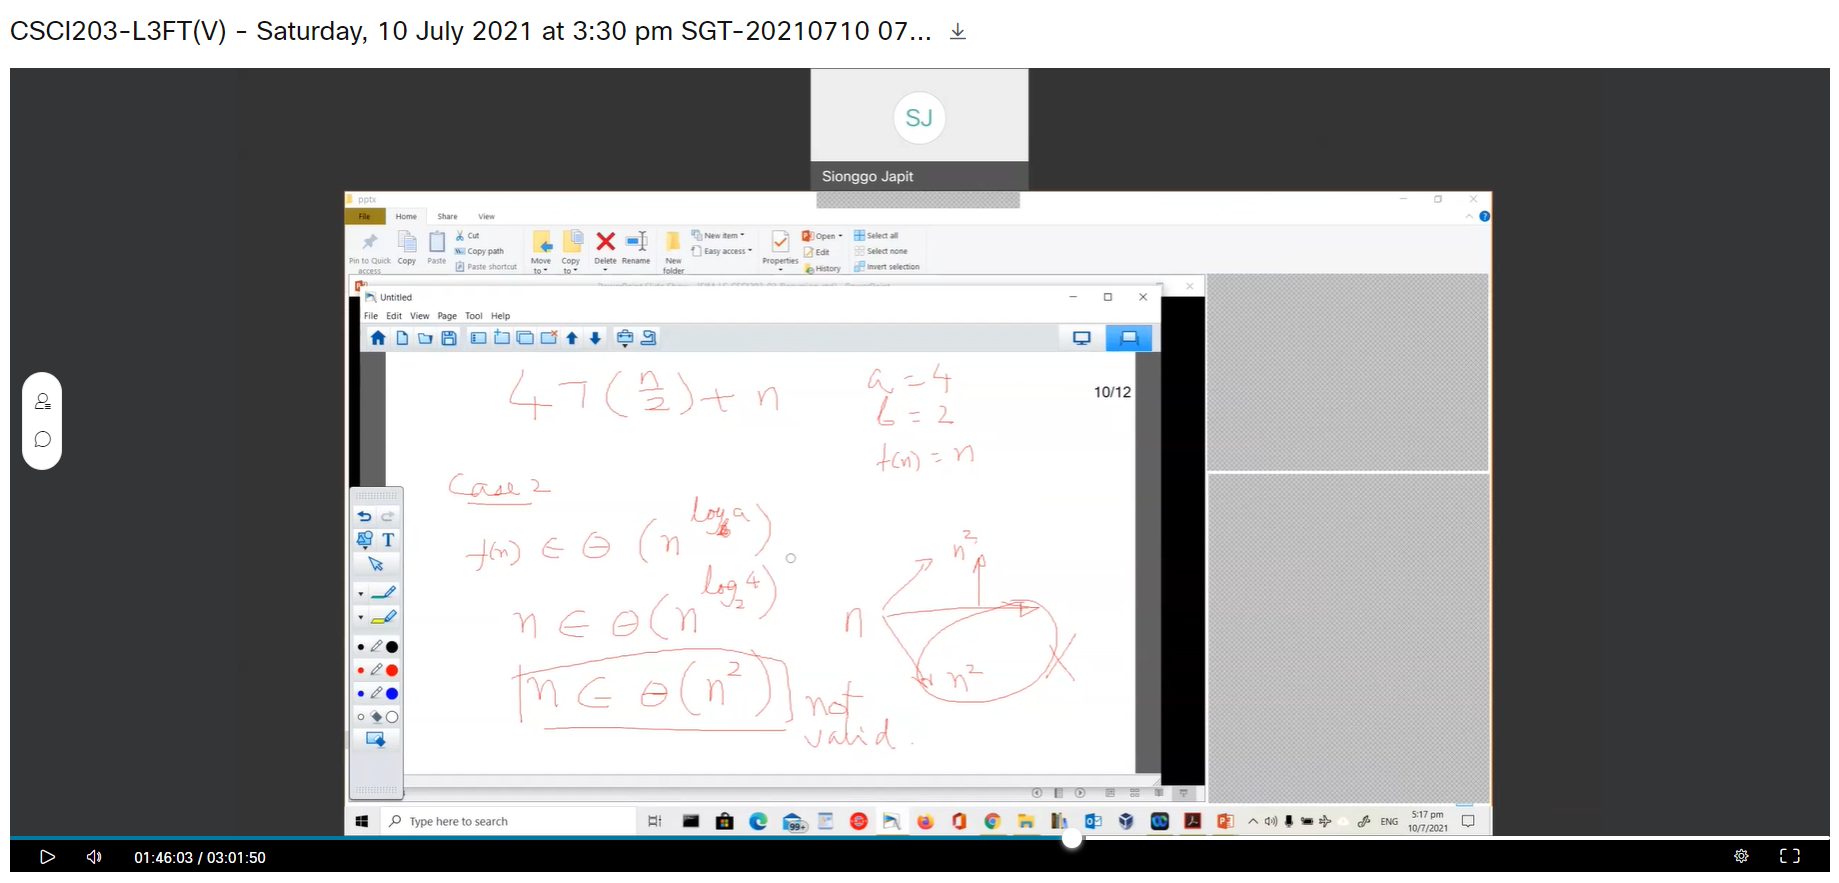 CSCI203-L3FT(V) - Saturday, 10 July 2021 at 3:30 pm SGT-20210710 07...
SJ
Sionggo Japit
pptx
File Home Share View
Pin to Quick access
Copy
Paste
Cut
Copy path
Paste shortcut
Move to
Copy to
Delete
Rename
New folder
New item
Easy access
Properties
Open
Edit
History
Select all
Select none
Invert selection
Untitled
File Edit View Page Tool Help
10/12
4T(n/2)+n
a = 4
b = 2
f(n) = n
Case 2
f(n) ∈ Θ (n^log_b a)
n ∈ Θ(n^log_2 4)
n ∈ Θ(n^2)
not valid.
n
n^2
n^2
T
Type here to search
99+
ENG
5:17 pm
10/7/2021
01:46:03 / 03:01:50